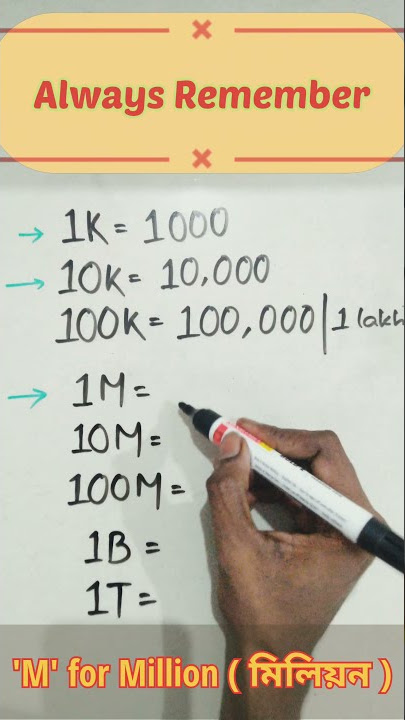 Always Remember
→ 1K = 1000
→ 10K = 10,000
100K = 100,000 | 1 lakh
→ 1M =
10M =
100M =
1B =
1T =
'M' for Million ( মিলিয়ন )